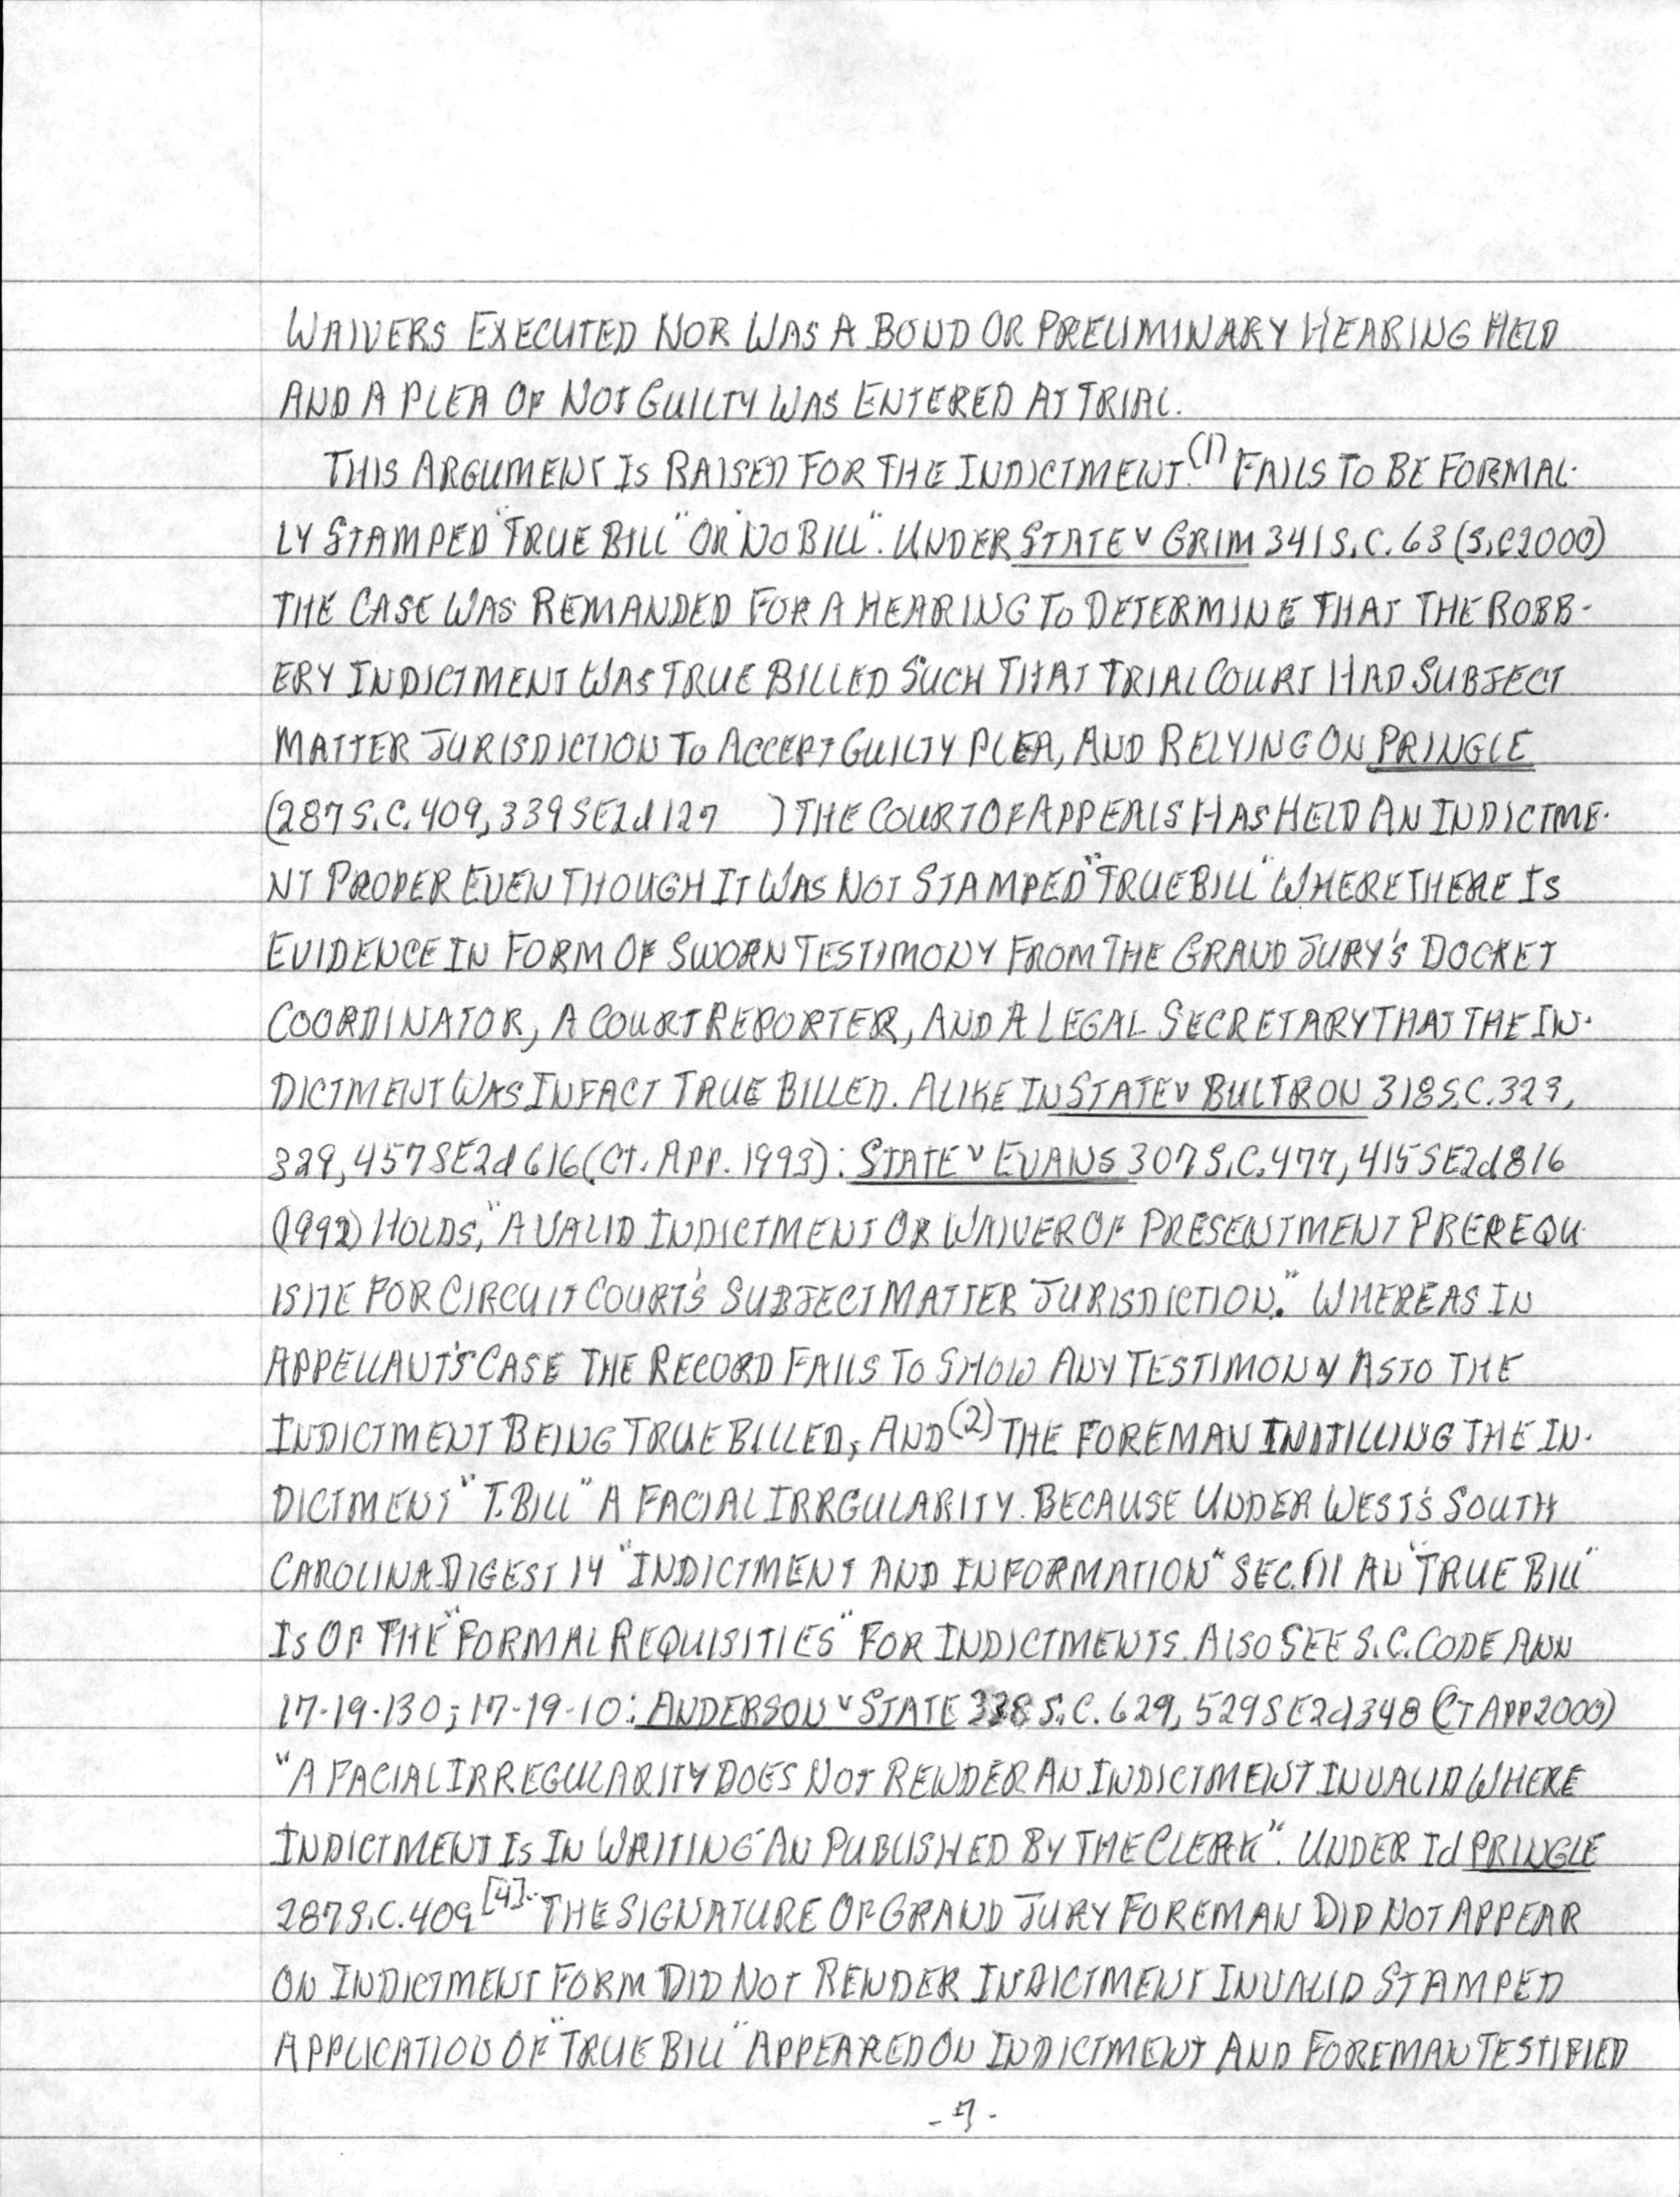 WAIVERS EXECUTED NOR WAS A BOND OR PRELIMINARY HEARING HELD
AND A PLEA OF NOT GUILTY WAS ENTERED AT TRIAL.
THIS ARGUMENT IS RAISED FOR THE INDICTMENT (1) FAILS TO BE FORMAL-
LY STAMPED "TRUE BILL" OR "NO BILL". UNDER STATE v GRIM 341 S.C. 63 (S.C 2000)
THE CASE WAS REMANDED FOR A HEARING TO DETERMINE THAT THE ROBB-
ERY INDICTMENT WAS TRUE BILLED SUCH THAT TRIAL COURT HAD SUBJECT
MATTER JURISDICTION TO ACCEPT GUILTY PLEA, AND RELYING ON PRINGLE
(287 S.C. 409, 339 SE2d 127 ) THE COURT OF APPEALS HAS HELD AN INDICTME-
NT PROPER EVEN THOUGH IT WAS NOT STAMPED "TRUE BILL" WHERE THERE IS
EVIDENCE IN FORM OF SWORN TESTIMONY FROM THE GRAND JURY'S DOCKET
COORDINATOR, A COURT REPORTER, AND A LEGAL SECRETARY THAT THE IN-
DICTMENT WAS INFACT TRUE BILLED. ALIKE IN STATE v BULTRON 318 S.C. 323,
329, 457 SE2d 616 (CT. APP. 1993): STATE v EVANS 307 S.C. 477, 415 SE2d 816
(1992) HOLDS, "A VALID INDICTMENT OR WAIVER OF PRESENTMENT PREREQU-
ISITE FOR CIRCUIT COURT'S SUBJECT MATTER JURISDICTION." WHEREAS IN
APPELLANT'S CASE THE RECORD FAILS TO SHOW ANY TESTIMONY AS TO THE
INDICTMENT BEING TRUE BILLED, AND (2) THE FOREMAN INITILLING THE IN-
DICTMENT "T. BILL" A FACIAL IRRGULARITY. BECAUSE UNDER WEST'S SOUTH
CAROLINA DIGEST 14 "INDICTMENT AND INFORMATION" SEC. III AN "TRUE BILL"
IS OF THE "FORMAL REQUISITIES" FOR INDICTMENTS. ALSO SEE S.C. CODE ANN
17-19-130; 17-19-10: ANDERSON v STATE 338 S.C. 629, 529 SE2d 348 (CT APP 2000)
"A FACIAL IRREGULARITY DOES NOT RENDER AN INDICTMENT INVALID WHERE
INDICTMENT IS IN WRITING AN PUBLISHED BY THE CLERK". UNDER Id PRINGLE
287 S.C. 409 [4]. THE SIGNATURE OF GRAND JURY FOREMAN DID NOT APPEAR
ON INDICTMENT FORM DID NOT RENDER INDICTMENT INVALID STAMPED
APPLICATION OF "TRUE BILL" APPEARED ON INDICTMENT AND FOREMAN TESTIFIED
-7-